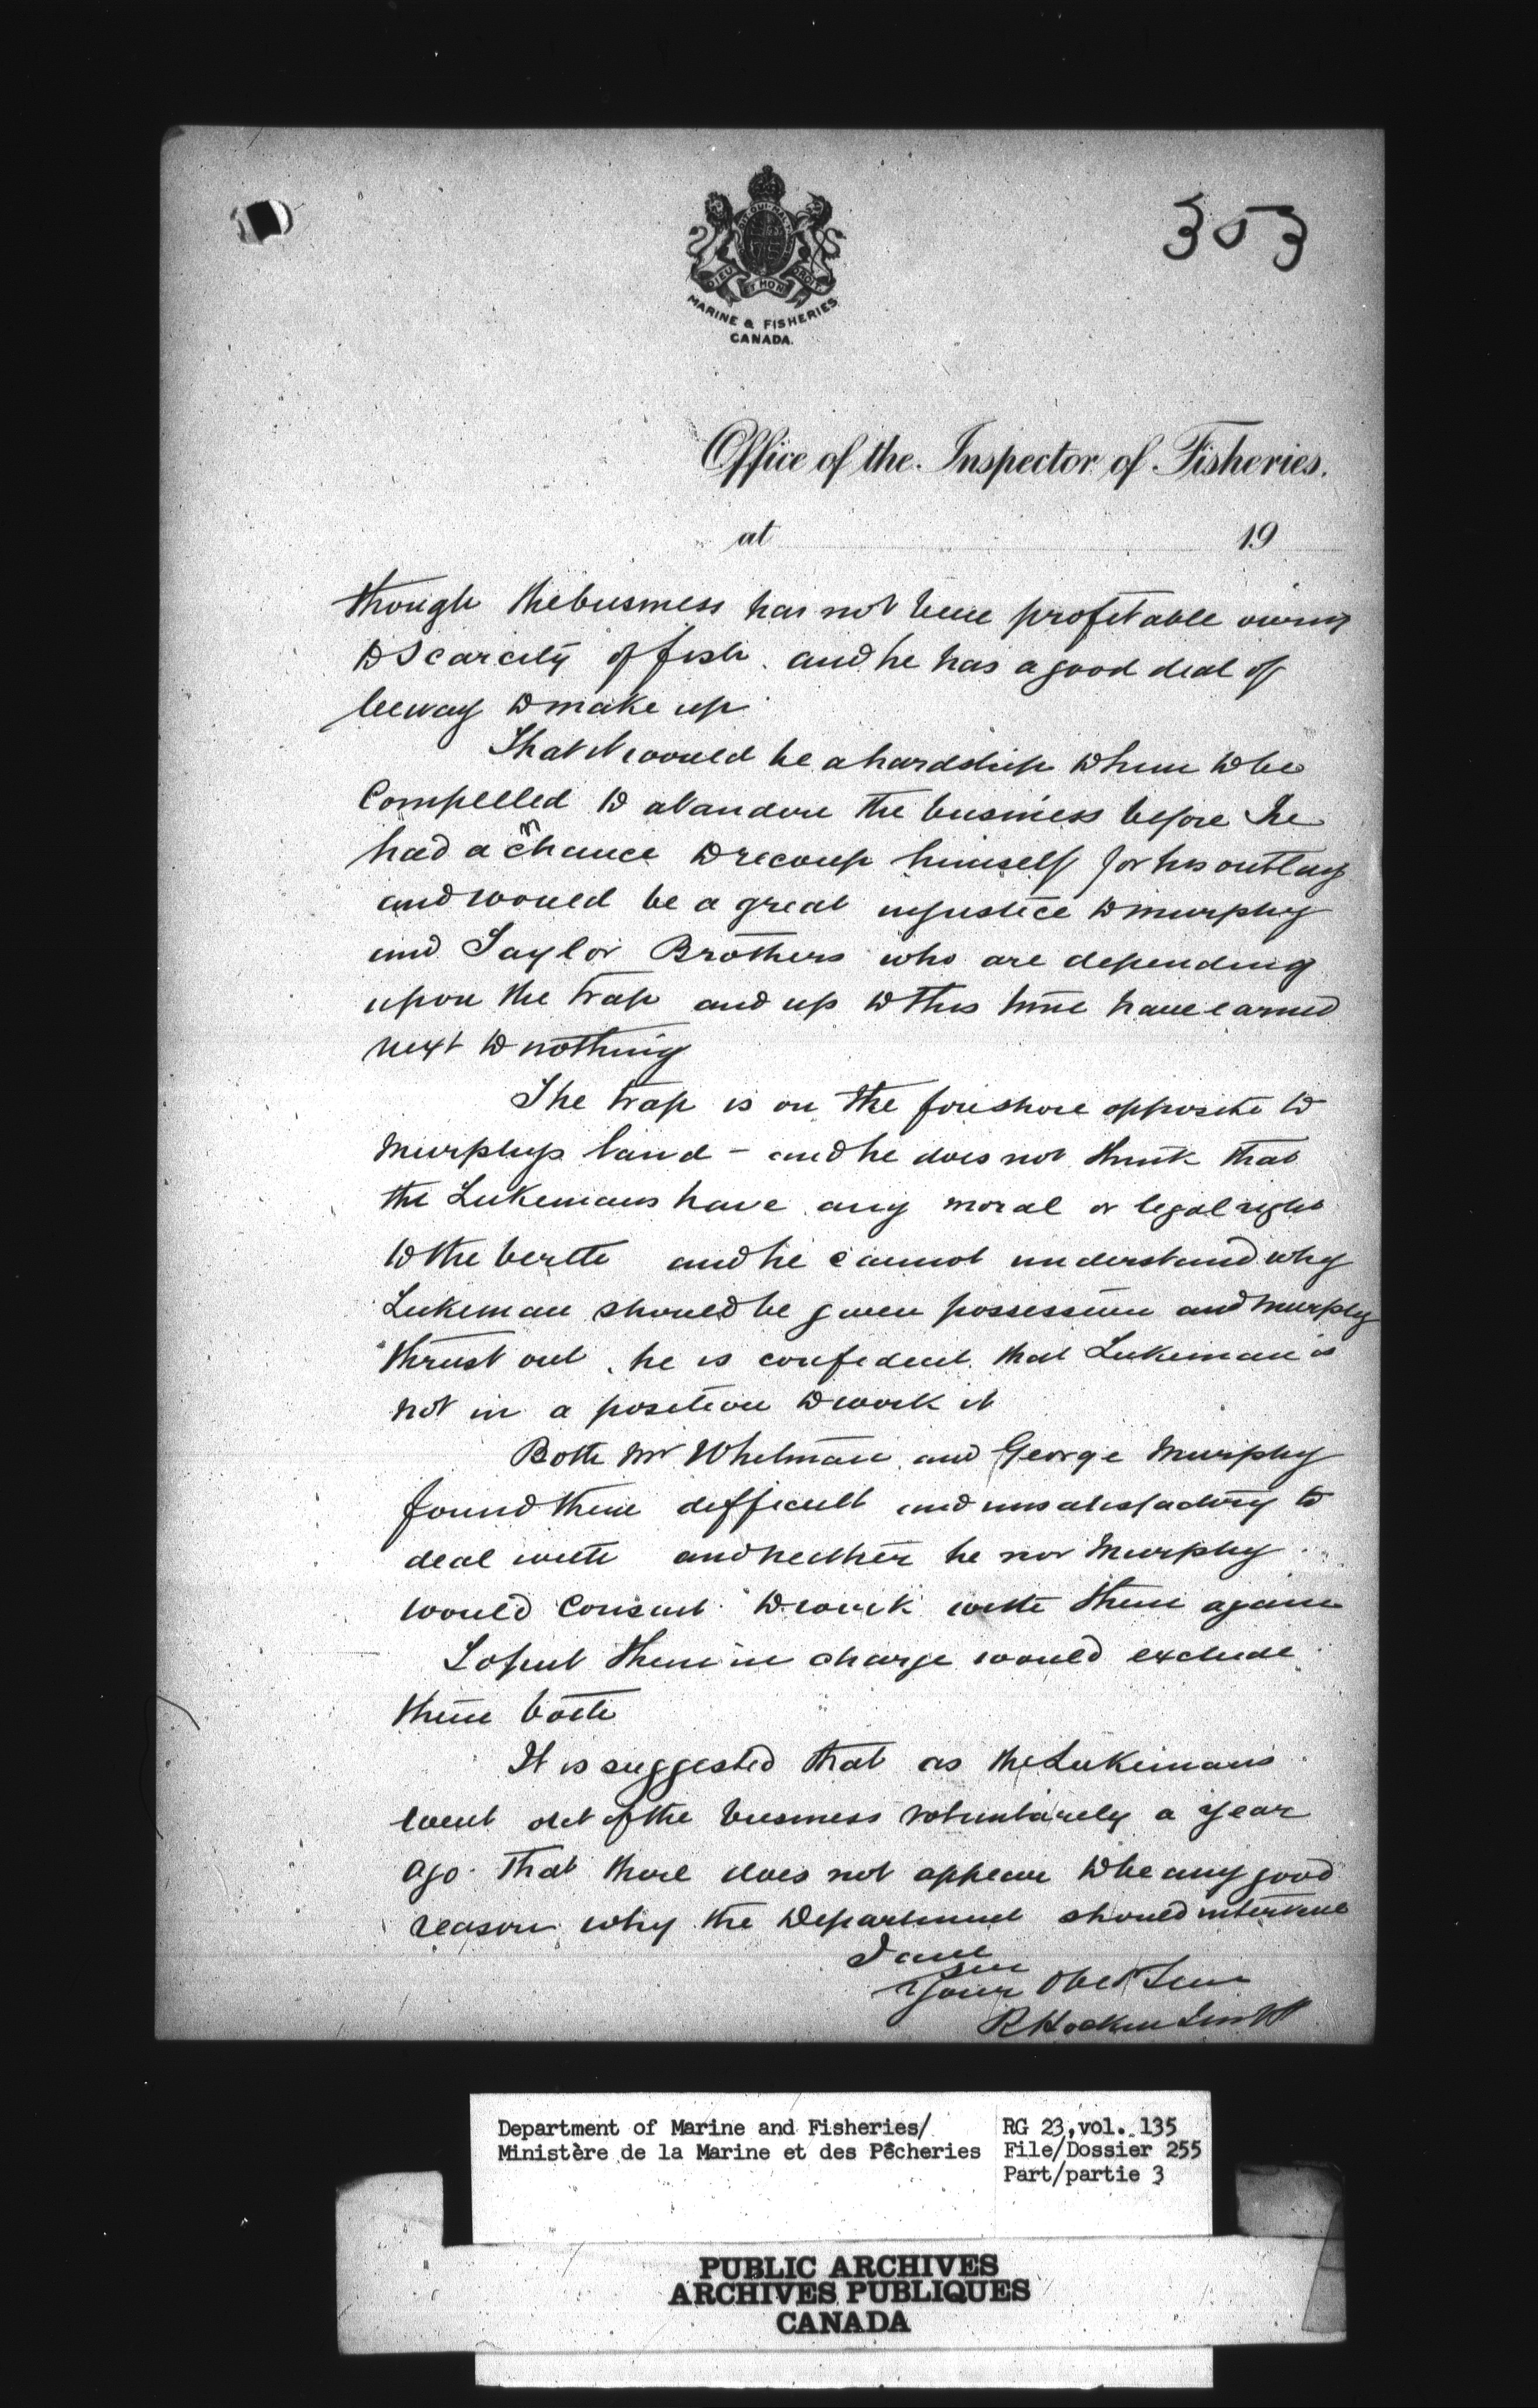 353
DIEU ET MON DROIT
MARINE & FISHERIES
CANADA.
Office of the Inspector of Fisheries.
at 19
though the business has not been profitable owing
to scarcity of fish and he has a good deal of
leeway to make up
That it would be a hardship to him to be
Compelled to abandon the business before he
had a chance to recoup himself for his outlay
and would be a great injustice to Murphy
and Taylor Brothers who are depending
upon the trap and up to this time have earned
next to nothing
The trap is on the foreshore opposite to
Murphys land - and he does not think that
the Lukemans have any moral or legal right
to the berth and he cannot understand why
Lukeman should be given possession and Murphy
thrust out, he is confident that Lukeman is
not in a position to work it
Both Mr Whitman and George Murphy
found them difficult and unsatisfactory to
deal with and neither he nor Murphy
would Consent to work with them again
To put them in charge would exclude
them both
It is suggested that as the Lukemans
went out of the business voluntarily a year
ago that there does not appear to be any good
reason why the Department should intervene
I am
Sir
Your Obed Serv
R Hockin
Department of Marine and Fisheries/
Ministère de la Marine et des Pêcheries
RG 23, vol. 135
File/Dossier 255
Part/partie 3
PUBLIC ARCHIVES
ARCHIVES PUBLIQUES
CANADA